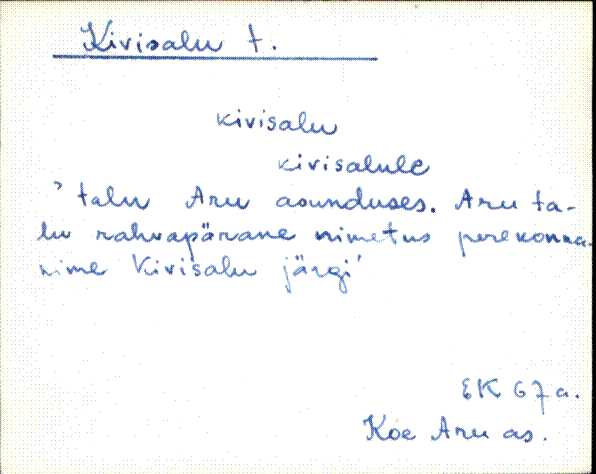 Kivisalu t.
kivisalu
kivisalule
' talu Aru asunduses. Aru ta-
lu rahvapärane nimetus perekonna-
nime Kivisalu järgi'
EK 67 a.
Koe Aru as.